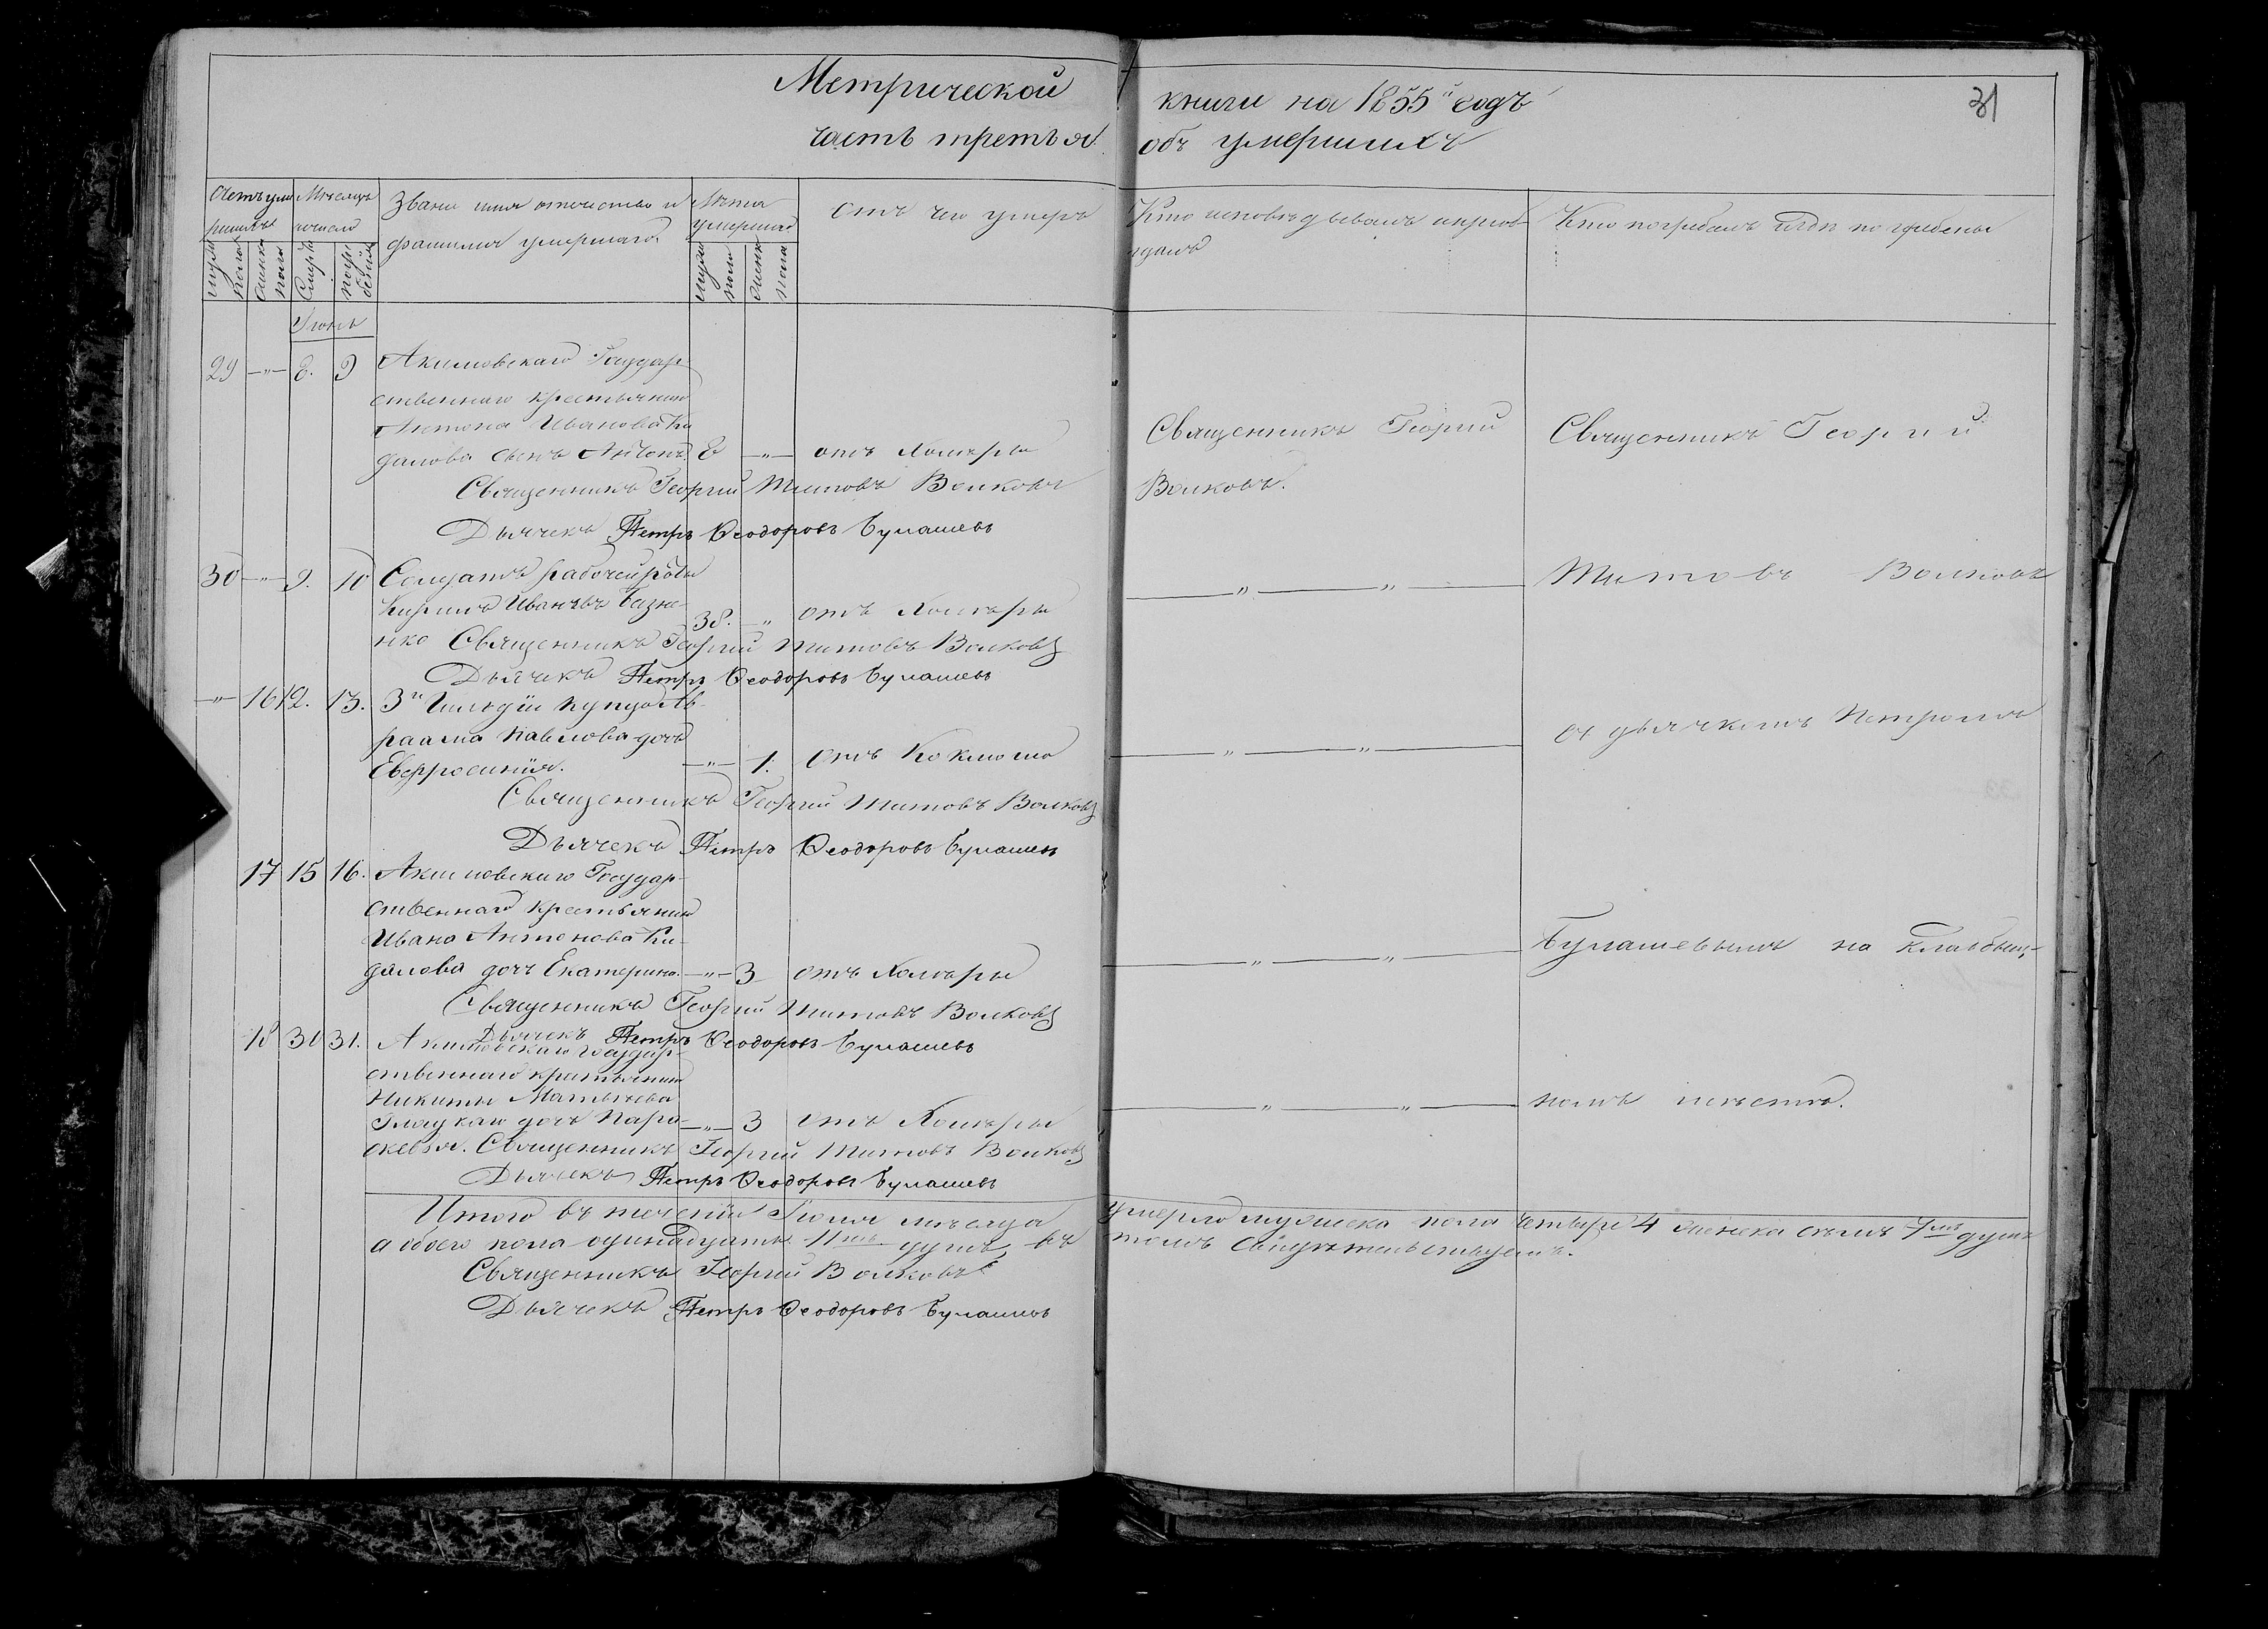 Метрической книги на 1855й годъ
31
часть третья объ умершихъ
Счетъ уме
ршихъ
Мѣсяцъ
и число
Званіе имя отчество и
фамилия умершаго.
Лѣта
умершаго
отъ чего умеръ
Кто исповѣдывалъ и приоб
щалъ
Кто погребалъ и гдѣ погребены
муж
пола
женска
пола
Смерть
погре
бенія
муж
пола
женск
пола
Іюнь
29 —"— 8. 9 Акимовскаго Государ
ственнаго крестьянина
Антона Иванова Ки
далова сынъ Антонъ 8 —"— отъ Холеры
Священникъ Георгий Титовъ Волковъ
Дьячекъ Петръ Ѳеодоровъ Булашевъ
Священникъ Георгий
Волковъ.
Священникъ Георгий
30 —"— 9. 10 Солдатъ рабочей роты
Кирилъ Ивановъ
нко 38. —"— отъ Холеры
Священникъ Георгий Титовъ Волковъ
Дьячекъ Петръ Ѳеодоровъ Булашевъ
—"—"— Титовъ Волковъ
—"— 16 12. 13. 3й Гильдіи купца Ав
раама Павлова дочь
Евфросинія. —"— 1. отъ Коклюша
Священникъ Георгий Титовъ Волковъ
Дьячекъ Петръ Ѳеодоровъ Булашевъ
—"—"— съ дьячкомъ Петромъ
17 15 16. Акимовскаго Государ-
ственнаго крестьянина
Ивана Антонова Ки-
далова дочь Екатерина. —"— 3 отъ Холеры
Священникъ Георгий Титовъ Волковъ
Дьячекъ Петръ Ѳеодоровъ Булашевъ
—"—"— Булашевымъ на кладбищ-
18 30 31. Акимовскаго Государ-
ственнаго крестьянина
Никиты Матвѣева
Гладкаго дочь Пара-
скевья. —"— 3 отъ Холеры
Священникъ Георгий Титовъ Волковъ
Дьячекъ Петръ Ѳеодоровъ Булашевъ
—"—"— номъ мѣстѣ.
Итого въ теченіи Іюня мѣсяца умерло мужеска пола четыре 4 женска семь 7мь душъ
а обоего пола одинадцать 11ть душъ, въ томъ свидѣтельствуемъ.
Священникъ Георгий Волковъ
Дьячекъ Петръ Ѳеодоровъ Булашевъ